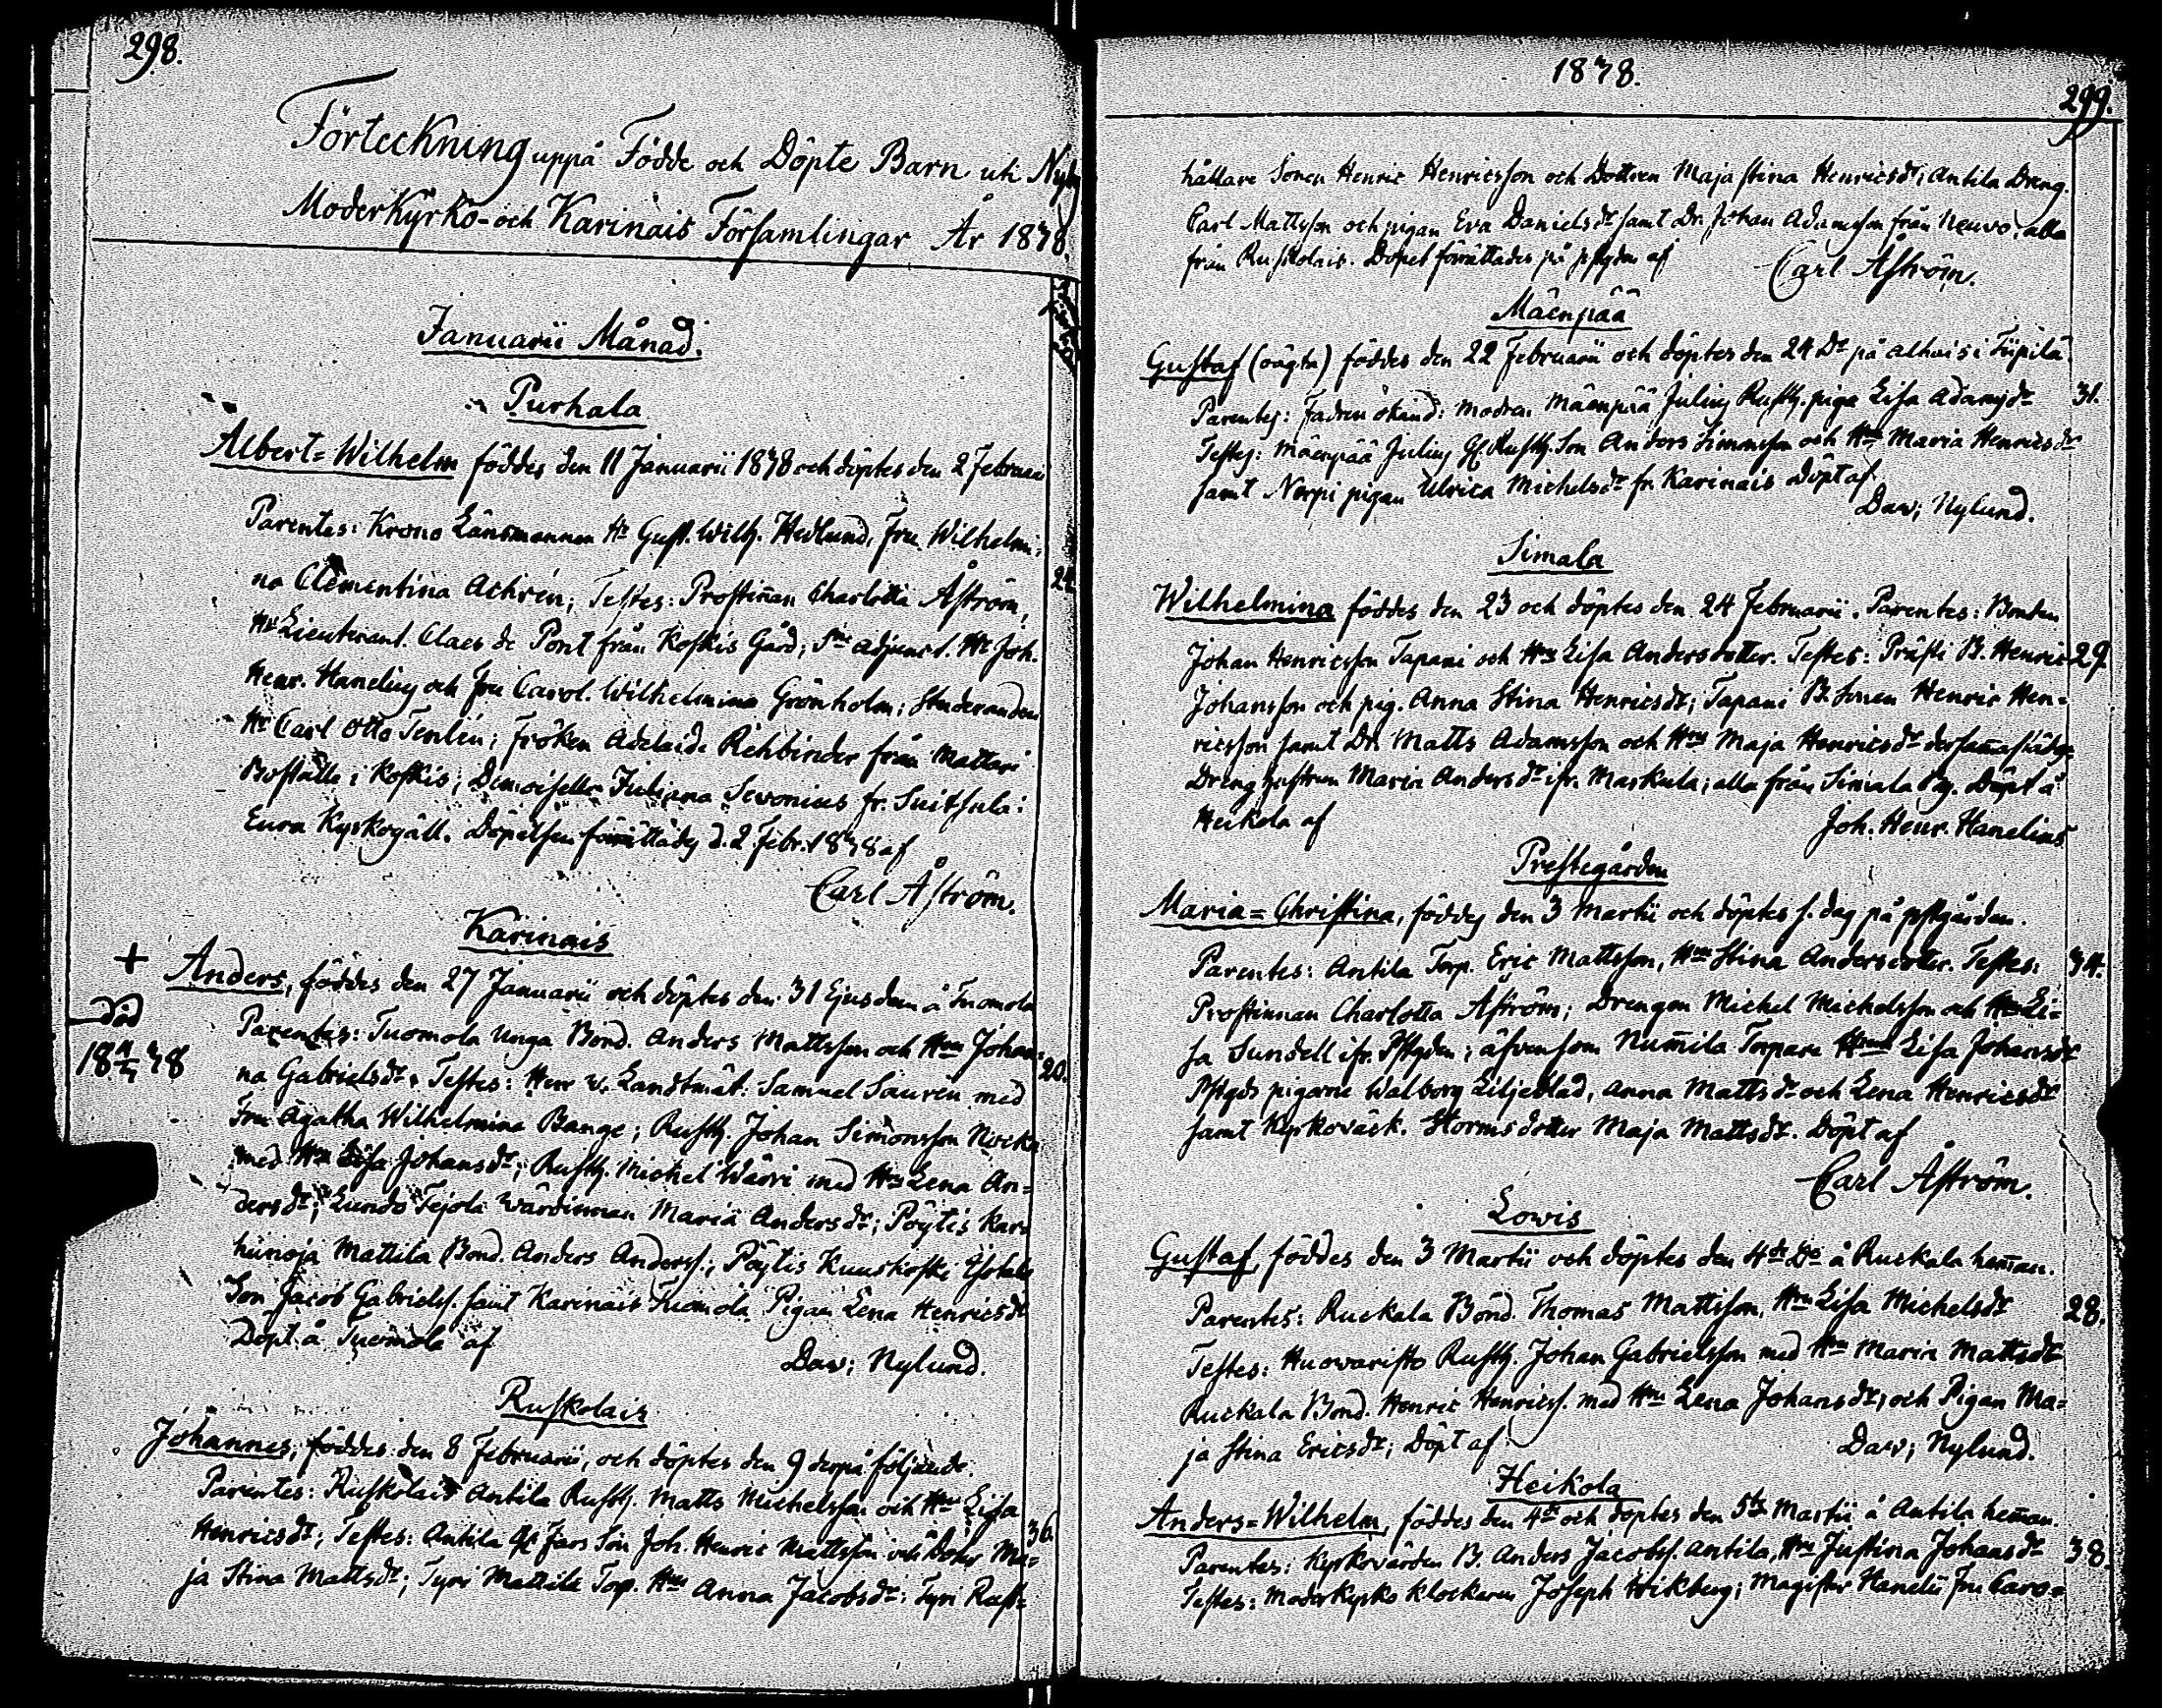 298.
Förteckning uppå Födde och Döpte Barn uti Nykj
Moderkyrko- och Karinais Församlingar År 1838.
Januarii Månad.
Purhala
Albert=Wilhelm föddes den 11 Januarii 1838 och döptes den 2 Februarii
Parentes: Krono Länsmannen Hr Gust. Wilh. Hedlund, Fru Wilhelmi=
na Clementina Achrén; Testes: Prostinnan Charlotta Åström,
24.
Hr Lieutenant. Claes de Pont från Koskis Gård; Sne adjunct. Hr Joh.
Henr. Hanelius och Fru Carol. Wilhelmina Grönholm; Studeranden
Hr Carl Otto Tenlén; Fröken Adelaide Rehbinder från Mattari
Boställe i Koskis; Demoiselle Juliana Sevonius fr. Suitsula i
Eura Kyrkogäll. Döpelsen förrättades d. 2 Febr. 1838 af
Carl Åström.
Karinais
+ Anders, föddes den 27 Januarii och döptes den 31 Ejusdem å Tuomola
död
18 38
Parentes: Tuomola unga Bond. Anders Mattsson och Hu Johan=
20.
na Gabrielsdr. Testes: Herr v. Landtmät. Samuel Saurén med
Fru Agatha Wilhelmina Bange; Rusth. Johan Simonsson Nocka
med Hu Lisa Johansdr; Rusth. Michel Wäri med Hu Lena An=
dersdr; Lundo Tejola Värdinnan Maria Andersdr; Pöytis Kar=
hunoja Mattila Bond. Anders Anderss.; Pöytis Kuuskoski Isotalo
Son Jacob Gabrielss. samt Karinais Tuomola Pigan Lena Henricsdr
Döpt å Tuomola af
Daw; Nylund.
Ruskolais
Johannes, föddes den 8 Februarii, och döptes den 9 derpå följande.
Parentes: Ruskolais Antila Rusth. Matts Michelsson och Hu Lisa
36.
Henricsdr; Testes: Antila Gl Fars Son Joh. Henric Mattsson och Dotter Ma=
ja Stina Mattsdr; Tyri Mattila Torp. Hu Anna Jacobsdr: Tyri Rust=
1838.
299.
hållare Sonen Henric Henricsson och Dottren Maja Stina Henricsdr; Antila Dreng.
Carl Mattsson och pigan Eva Danielsdr samt Dr. Johan Adamsson från Neuvo; alla
från Ruskolais. Döpet förrättades på pstgden af
Carl Åström.
Mäenpää
Gustaf (oägta) föddes den 22 Februarii och döptes den 24 Do på Alhais i Tiipilä.
Parentes: Fadren okänd: Modren Mäenpää Julius Rusth. piga Lisa Adamsdr
31.
Testes: Mäenpää Julius Gl. Rusth. Son Anders Simonsson och Hu Maria Henricsdr
samt Norpi pigan Ulrica Michelsdr fr. Karinais Döpt af
Daw; Nylund.
Simala
Wilhelmina föddes den 23 och döptes den 24 Februarii. Parentes: Bonden
Johan Henricsson Tapani och Hu Lisa Andersdotter. Testes: Prästi B. Henric
29.
Johansson och pig. Anna Stina Henricsdr; Tapani B. Sonen Henric Hen=
ricsson samt Dr. Matts Adamsson och Hu Maja Henricsdr
Dreng hustrun Maria Andersdr ifr. Maskula; alla från Simala By. Döpt å
Heikola af
Joh. Henr. Hanelius
Prestegården
Maria=Christina, föddes den 3 Martii och döptes s. dag på pstgården.
Parentes: Antila Torp. Eric Mattsson, Hu Stina Andersdotter. Testes:
34.
Prostinnan Charlotta Åström; Drengen Michel Michelsson och Hu Li=
sa Sundell ifr. Pstgden; äfvensom Num̄ila Torpare Hu Lisa Johansdr
Pstgds pigorne Walborg Liljeblad, Anna Mattsdr och Lena Henricsdr
samt Kyrkoväck. Storms dotter Maja Mattsdr. Döpt af
Carl Åström.
Lowis
Gustaf, föddes den 3 Martii och döptes den 4de Do å Ruckala hem̄an.
Parentes: Ruckala Bond. Thomas Mattsson, Hu Lisa Michelsdr
28.
Testes: Huovaristo Rusth. Johan Gabrielsson med Hu Maria Mattsdr
Ruckala Bond. Henric Henricss. med Hu Lena Johansdr, och Pigan Ma=
ja Stina Ericsdr; Döpt af
Daw; Nylund.
Heikola
Anders=Wilhelm, föddes den 4de och döptes den 5te Martii å Antila hem̄an.
Parentes: Kyrkovärden B. Anders Jacobss. Antila, Hu Justina Johansdr
38.
Testes: Moderkyrko Klockaren Joseph Wikberg; Magister Hanelii Fru Caro=